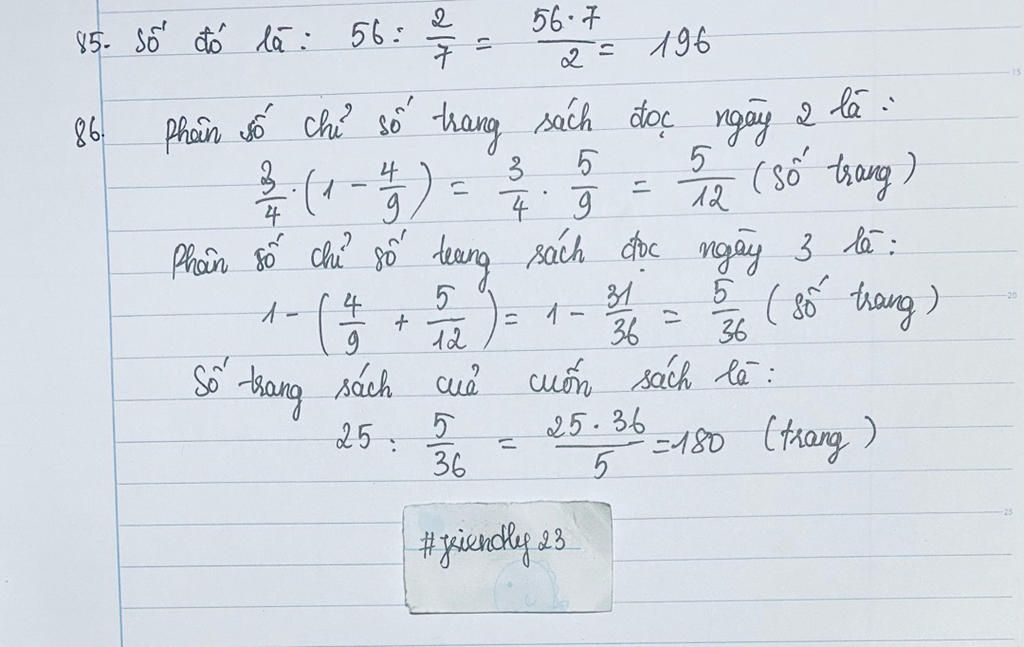 85. Số đó là: 56 : 2/7 = 56·7/2 = 196
86. Phân số chỉ số trang sách đọc ngày 2 là:
3/4 · (1 - 4/9) = 3/4 · 5/9 = 5/12 (số trang)
Phân số chỉ số trang sách đọc ngày 3 là:
1 - (4/9 + 5/12) = 1 - 31/36 = 5/36 (số trang)
Số trang sách cuả cuốn sách là:
25 : 5/36 = 25·36/5 = 180 (trang)
#friendly 23